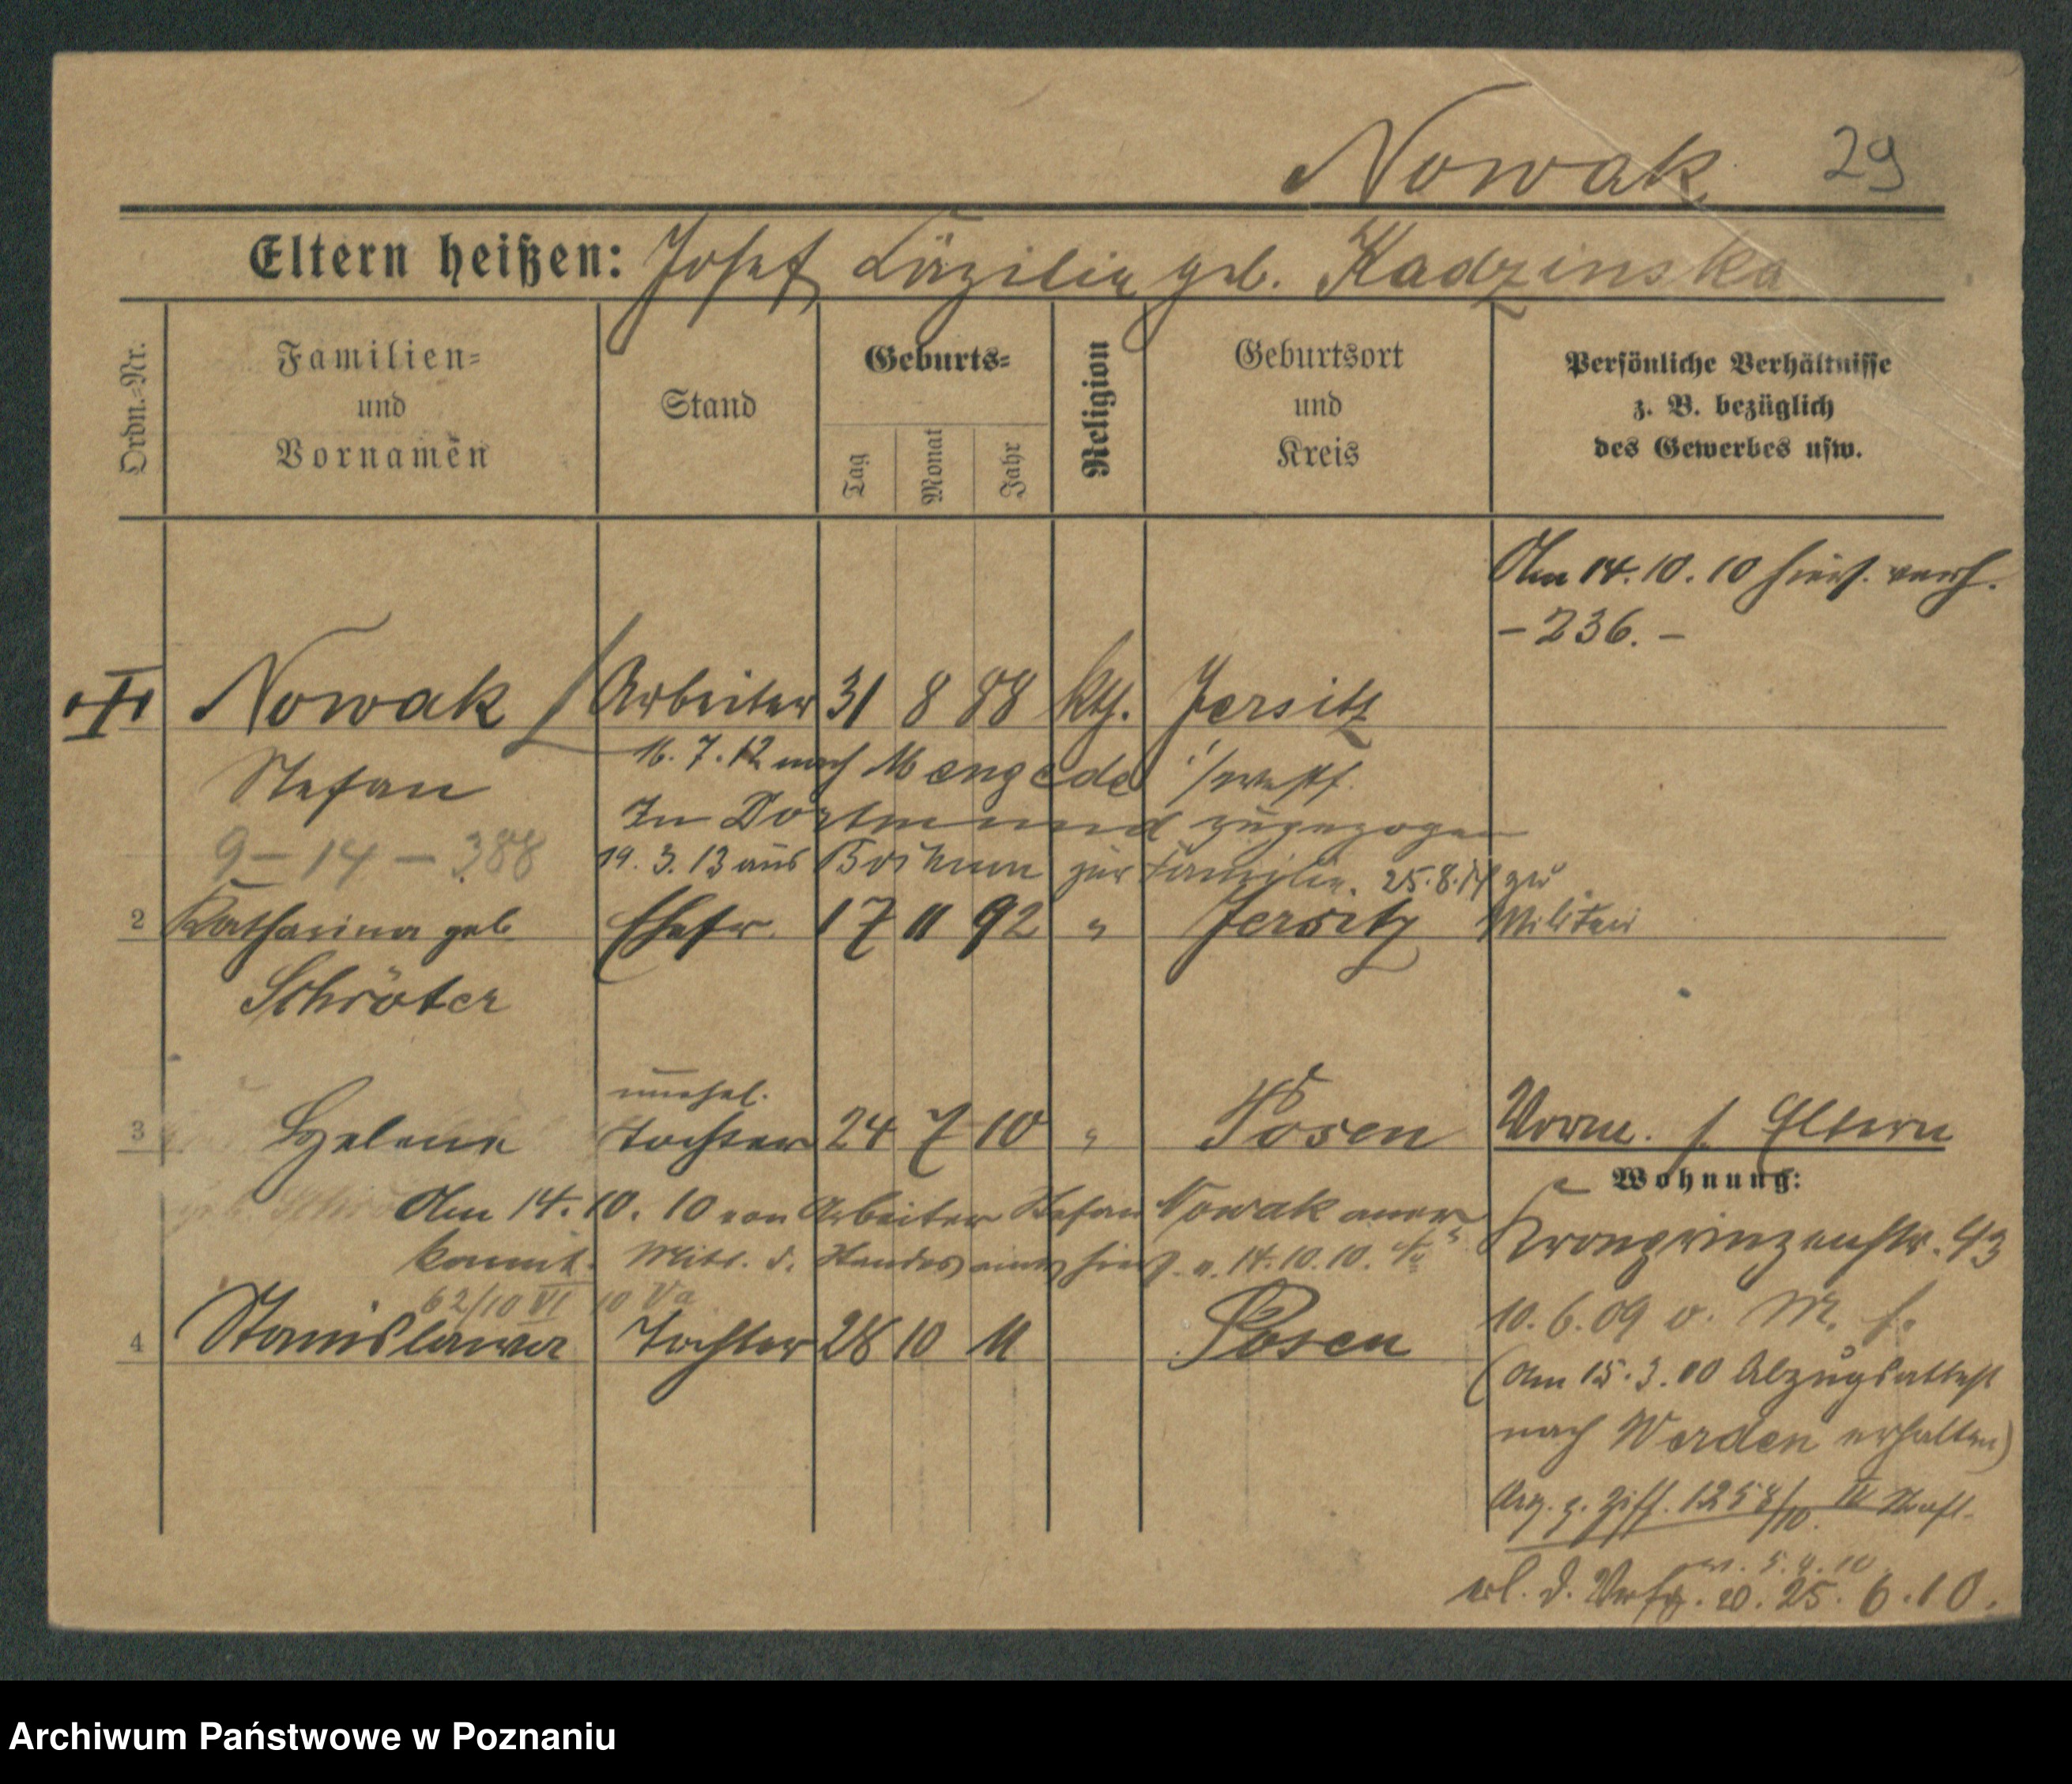 Nowak 29
Eltern heißen: Josef, Cäzilie geb. Kadzinska
Ordn.-Nr.
Familien-
und
Vornamen
Stand
Geburts-
Tag
Monat
Jahr
Religion
Geburtsort
und
Kreis
Persönliche Verhältnisse
z. B. bezüglich
des Gewerbes usw.
Am 14.10.10 hier verh.
- 236. -
Nowak Arbeiter 31 8 88 kth. Jersitz
Stefan
16.7.12 nach Mengede i/westf.
In Dortmund zugezogen
9 - 14 - 388
19.3.13 aus Bochum zur Familie. 25.8.14 zu
Militär
2 Katharina geb Ehefr. 17 11 92 " Jersitz
Schröter
unehel.
3 Helene Tochter 24 7 10 " Posen
Vorm. s. Eltern
Am 14.10.10 von Arbeiter Stefan Nowak aner-
kannt. Mitt. d. Standesamts hier v. 14.10.10.
62/10 VI 10 Va
4 Stanislawa Tochter 28 10 11 Posen
Wohnung:
Kronprinzenstr. 43
10.6.09 v. M. f.
(Am 15.3.10 Abzugsattest
nach Werden erhalten)
z. Ziff. 1258/10
v. 5.4.10
erl. d. Verfg. v. 25.6.10.
Archiwum Państwowe w Poznaniu